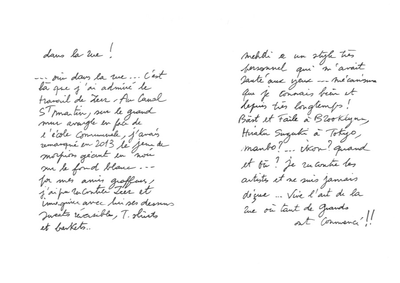 dans la rue !
--- oui dans la rue --- C'est
là que j'ai admiré le
travail de Zeer - Au Canal
St Martin, sur le grand
mur aveugle en face de
l'école Communale, j'avais
remarqué en 2013 le jeu de
morpion géant en noir
sur le fond blanc ---
par mes amis graffeurs,
j'ai pu rencontrer Zeer et
imaginer avec lui ses dessins
sweats réversibles, T. shirts
et baskets..
a un style très
personnel qui m'avait
sauté aux yeux --- mécanisme
que je connais bien et
depuis très longtemps !
Bäst et Faile à Brooklyn,
à Tokyo,
quand
et où ? je rencontre les
artistes et ne suis jamais
déçue --- Vive l'art de la
rue où tant de grands
ont commencé !!